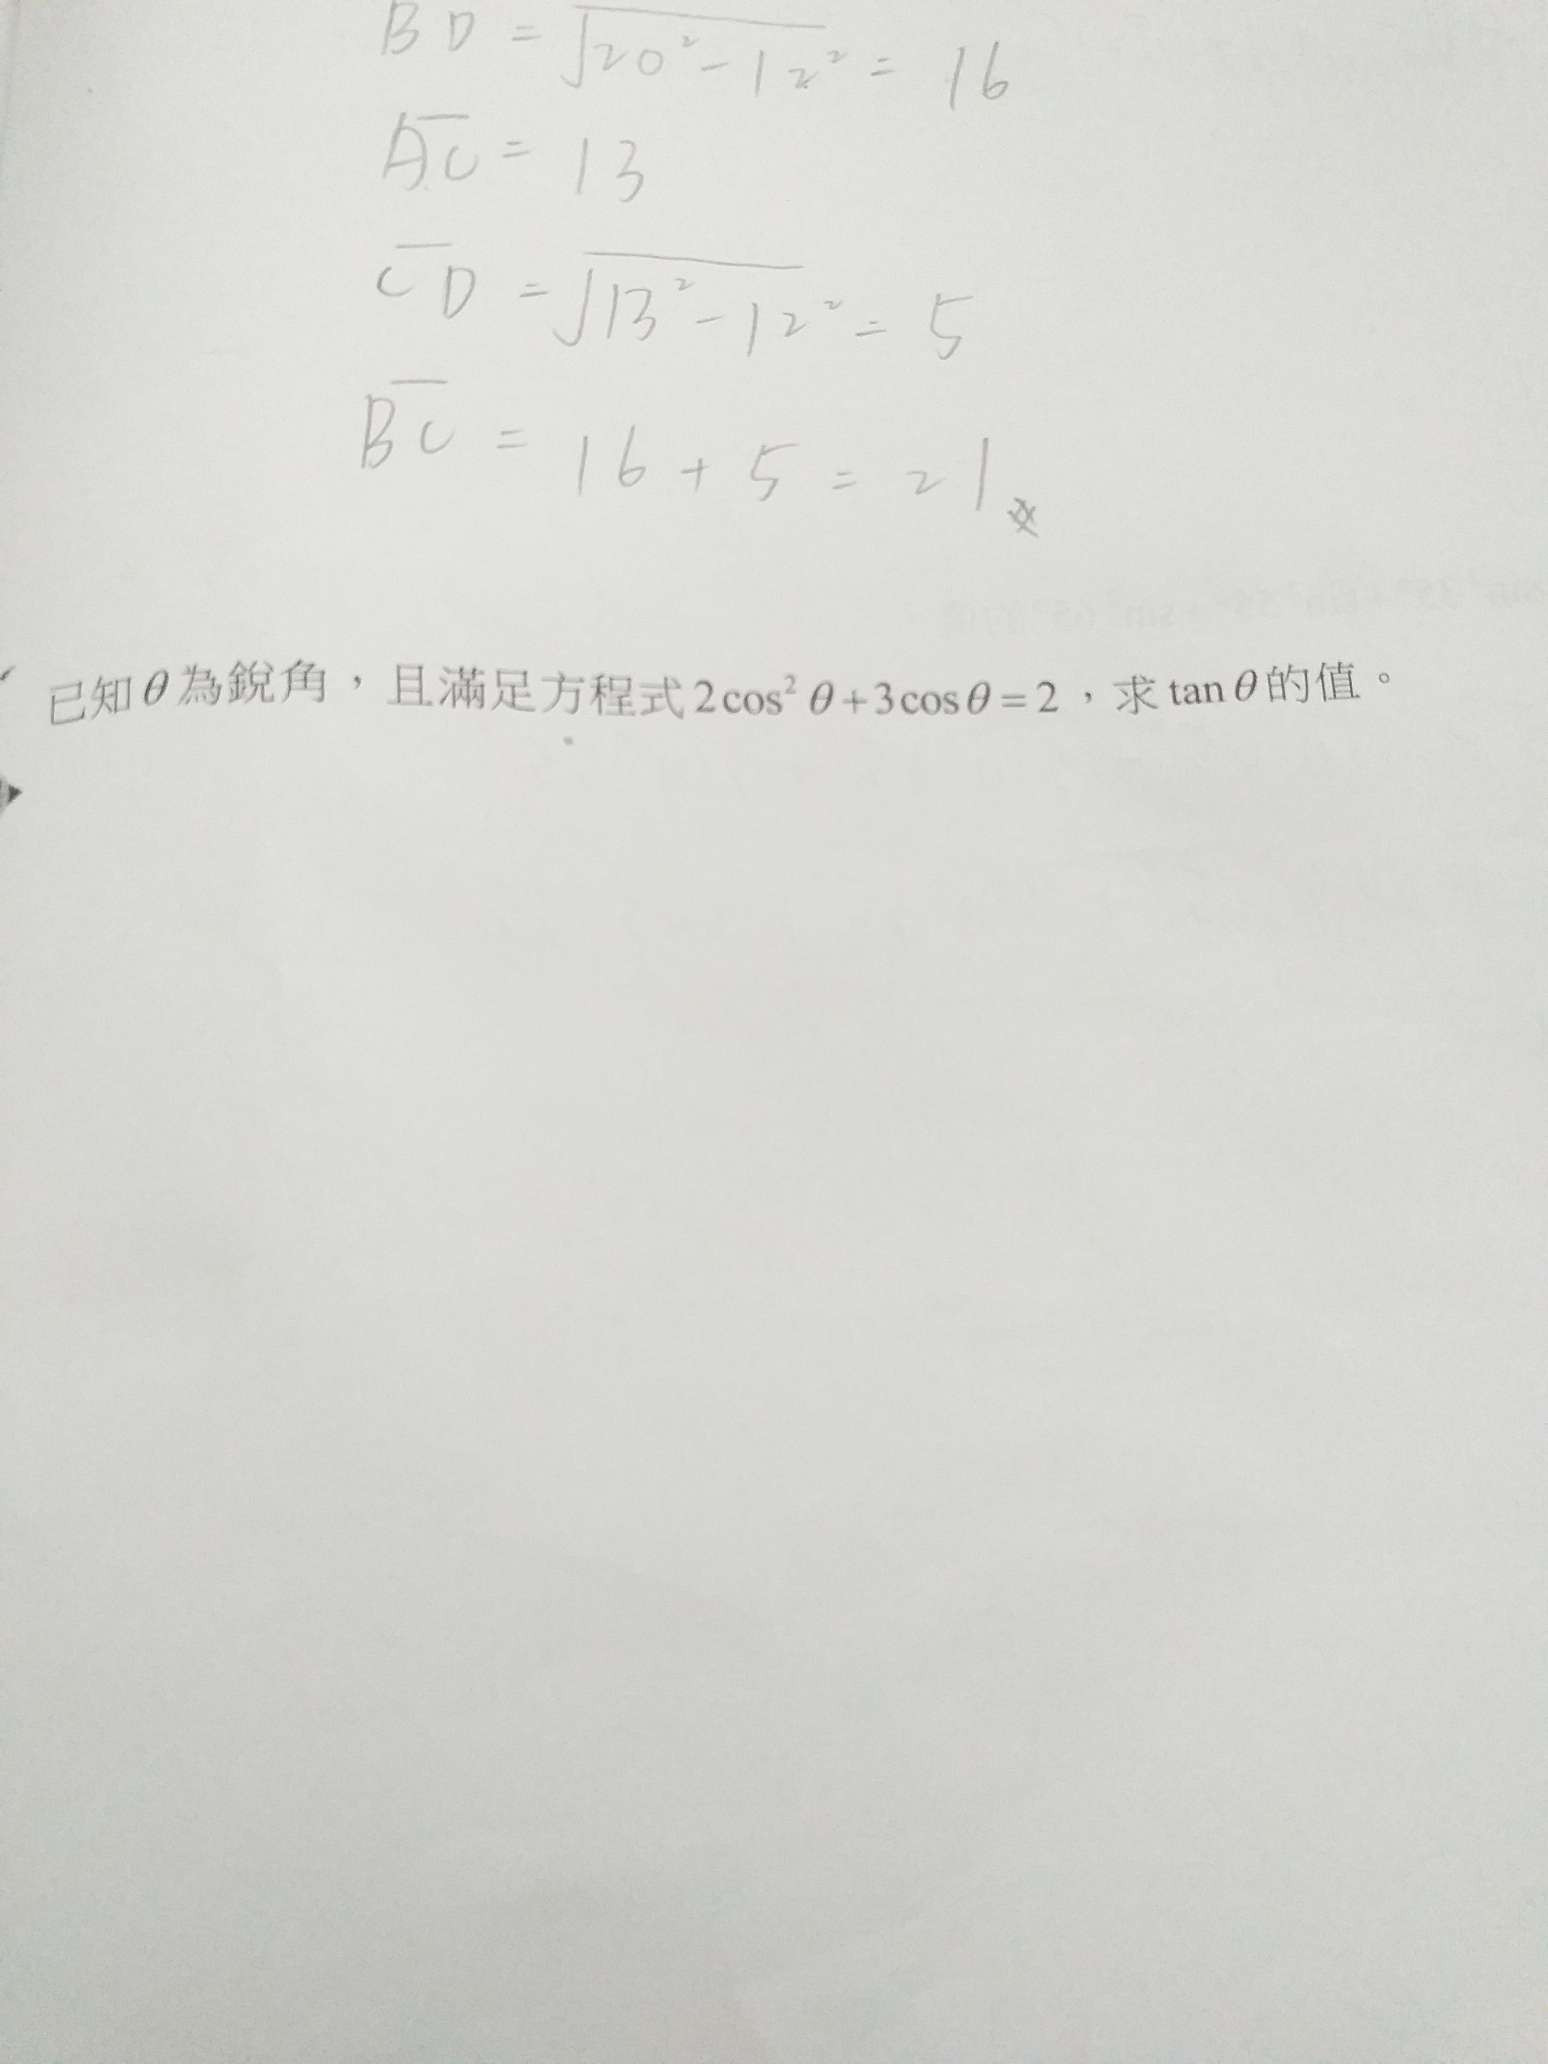 BD = √20² - 12² = 16
AC = 13
CD = √13² - 12² = 5
BC = 16 + 5 = 21
已知θ為銳角，且滿足方程式2cos²θ+3cosθ=2，求tanθ的值。